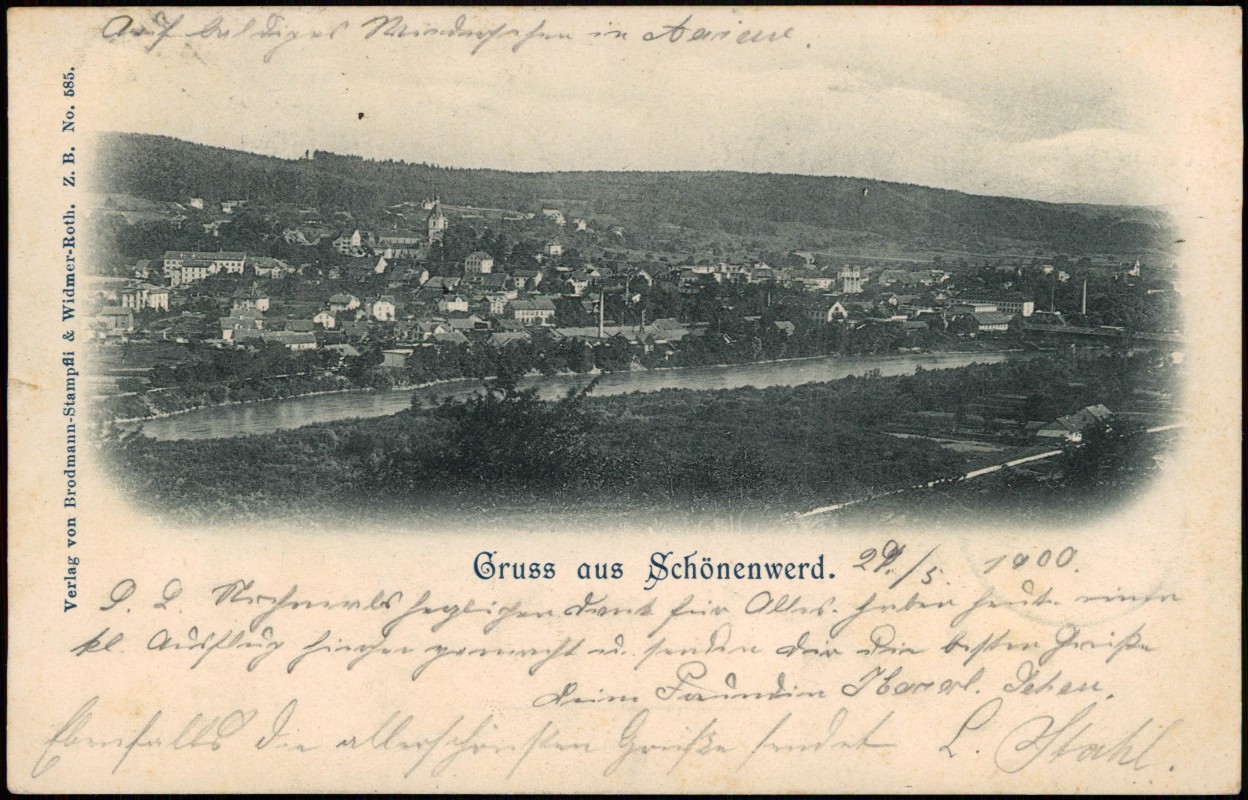 Auf baldiges Wiedersehen in
Verlag von Brodmann-Stampfli & Widmer-Roth. Z. B. No. 585.
Gruss aus Schönenwerd. 29./5. 1900.
D. L. Nochmals herzlichen Dank für Alles. Haben heute einen
kl. Ausflug hierher gemacht u. senden dir die besten Grüße
deine Freundin
Ebenfalls die allerschönsten Grüße sendet L. Stahl.